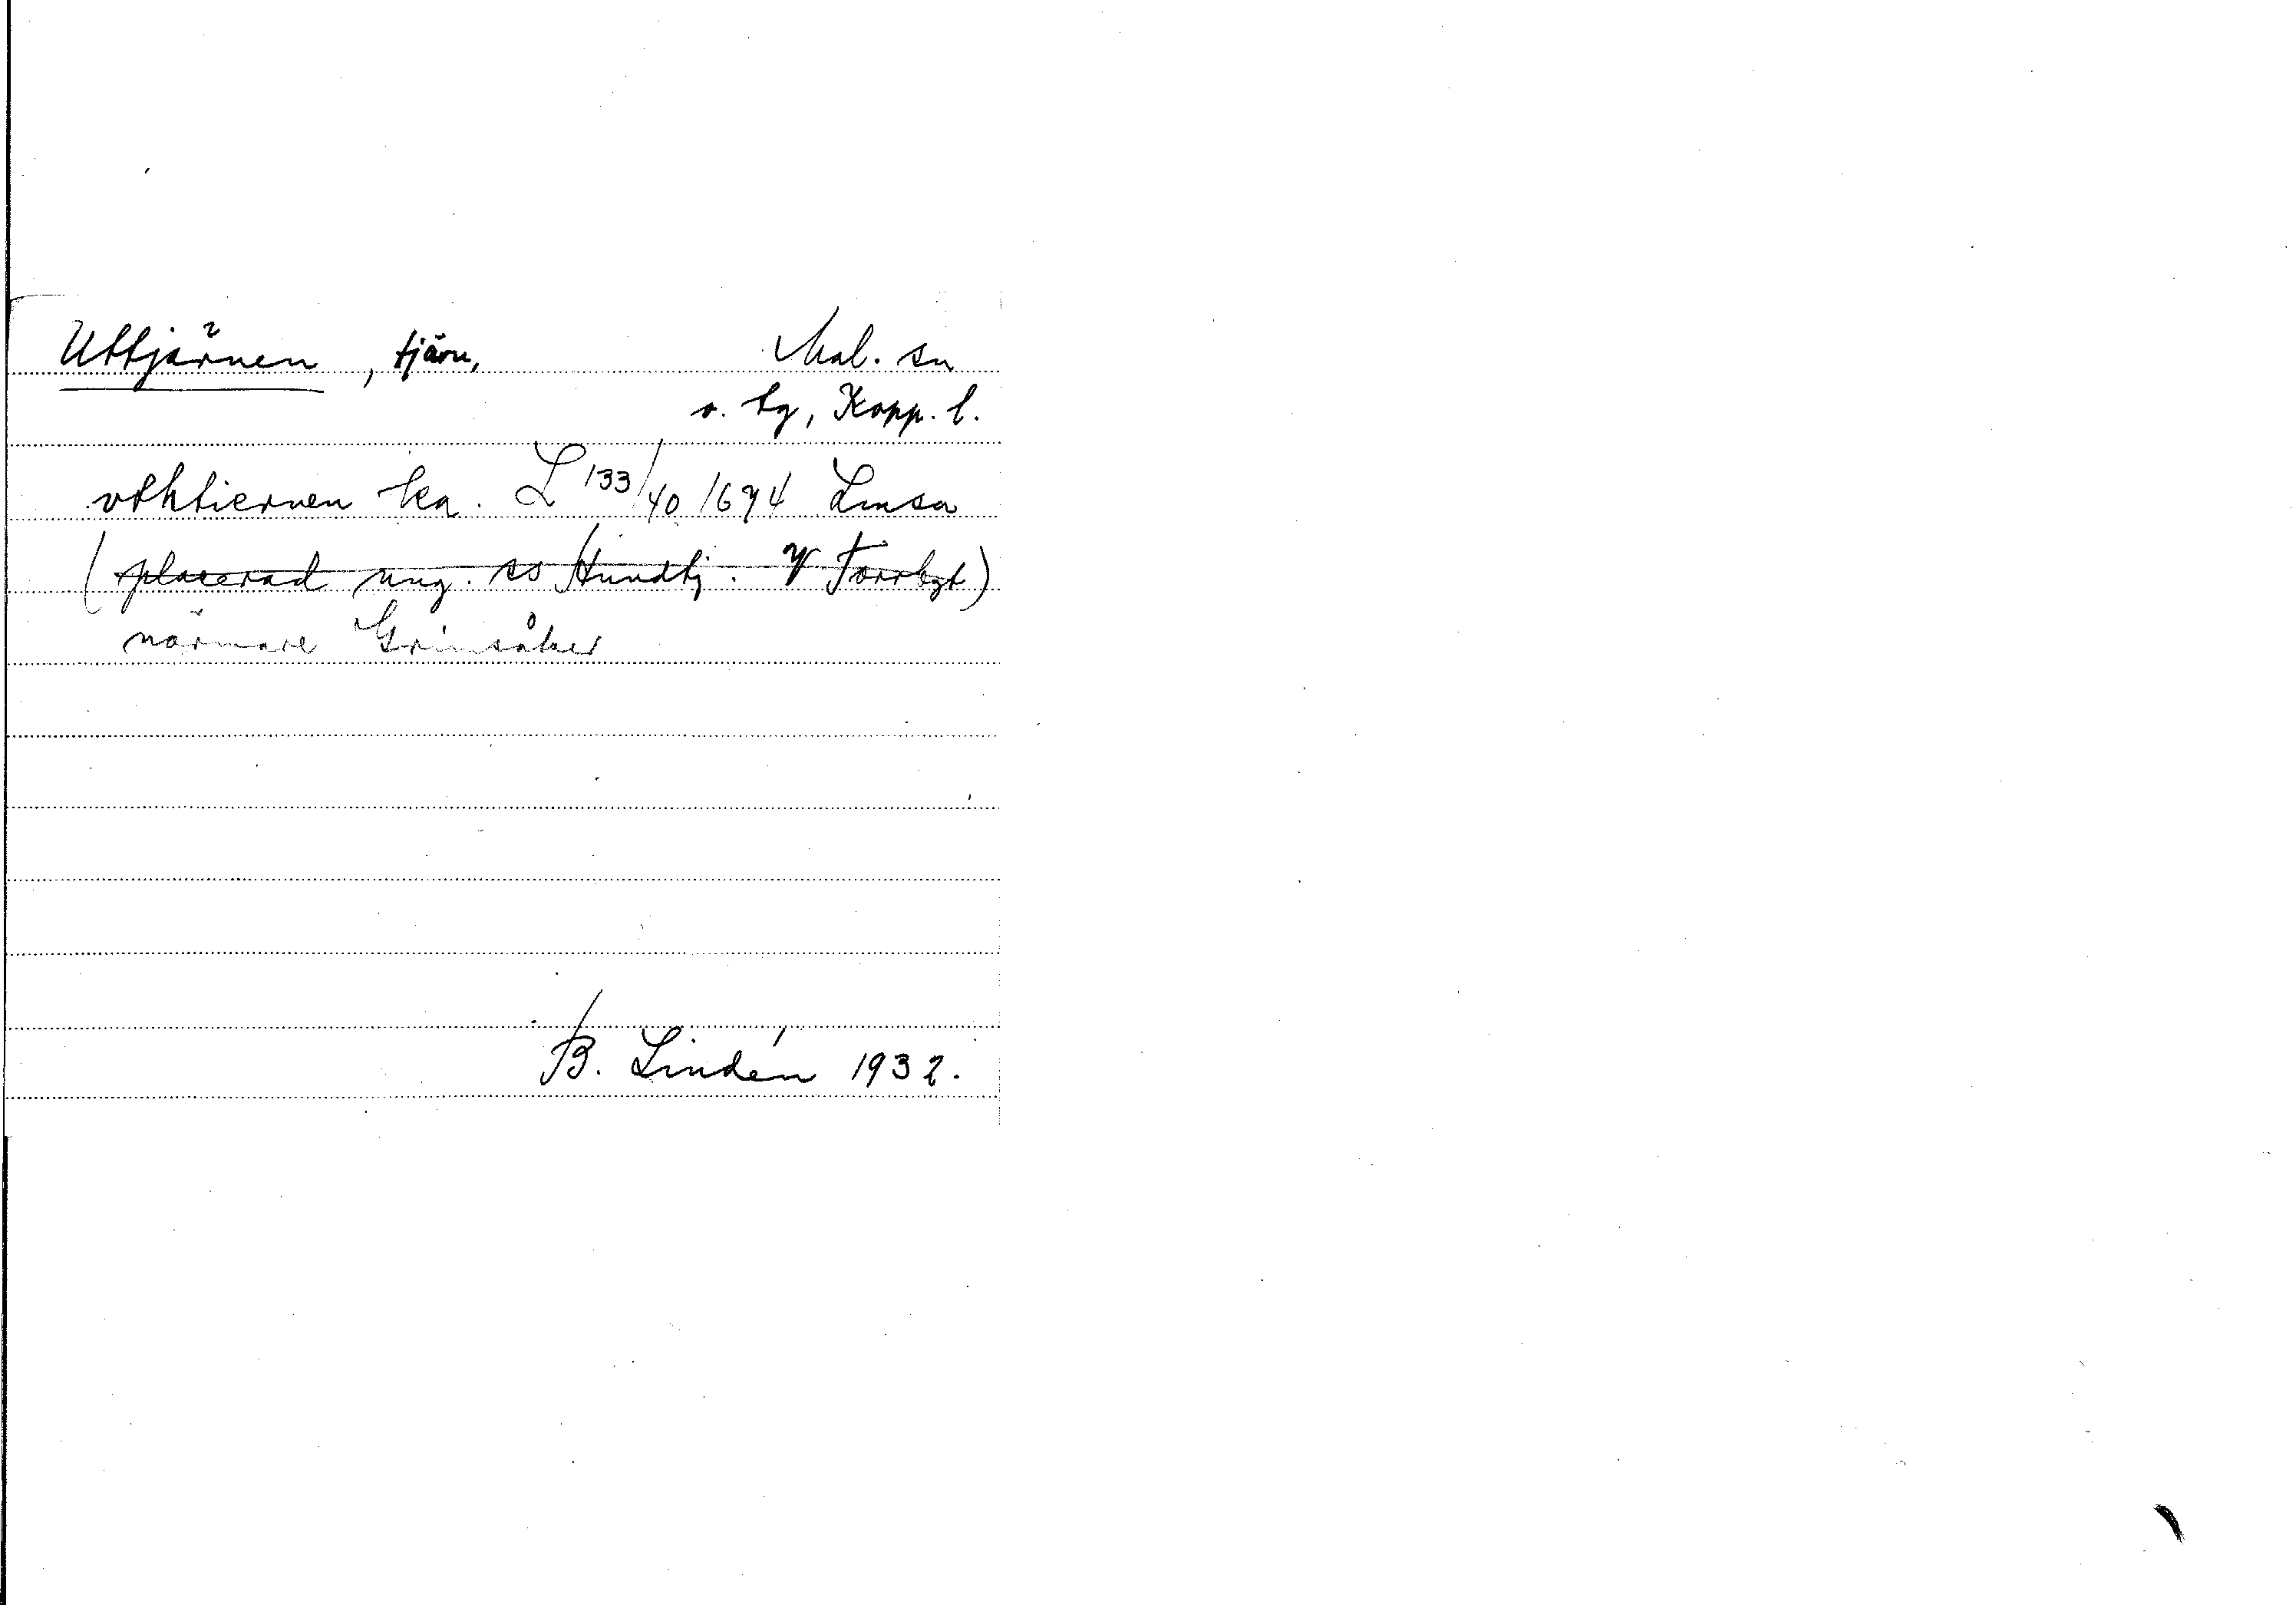 Uttjärnen, tjärn, Mal. sn
o. tg, Kopp. l.
vthtiernen ka. L 133/40 1694 Lmsa
(placerad ung. so Hundtj. V Torrbgt)
närmare Grimsåker
B. Lindén 1932.